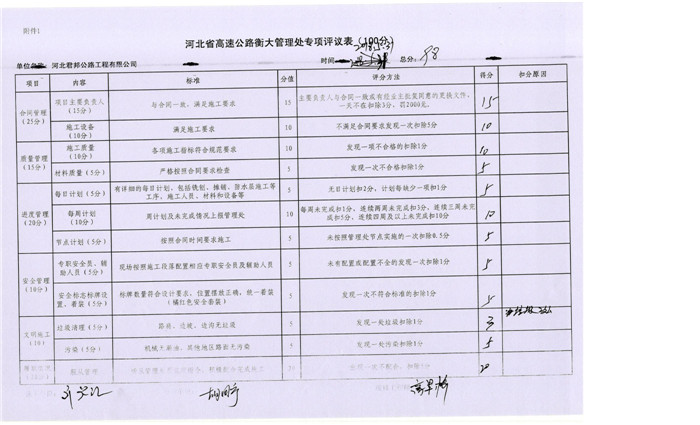 附件1
河北省高速公路衡大管理处专项评议表（100分）
河北君邦公路工程有限公司 时间 总分: 98
项目 内容 标准 分值 评分方法 得分 扣分原因
合同管理（25分） 项目主要负责人（15分） 与合同一致，满足施工要求 15 主要负责人与合同一致或有经业主批复同意的更换文件，一天不在扣除3分，罚2000元。 15
施工设备（10分） 满足施工要求 10 不满足合同要求发现一次扣除5分 10
质量管理（15分） 施工质量（10分） 各项施工指标符合规范要求 10 发现一项不合格的扣除1分 10
材料质量（5分） 严格按照合同要求检查 5 发现一次不合格扣除1分 5
进度管理（20分） 每日计划（5分） 有详细的每日计划，包括铣刨、摊铺、防水层施工等工序、施工人员、材料和设备等 5 无日计划扣2分，计划每缺少一项扣1分 5
每周计划（10分） 周计划及未完成情况上报管理处 10 每周未完成扣1分，连续两周未完成扣3分，连续三周未完成扣5分，连续四周及以上未完成扣10分 10
节点计划（5分） 按照合同时间要求施工 5 未按照管理处节点实施的一次扣除0.5分 5
安全管理（10分） 专职安全员、辅助人员（5分） 现场按照施工段落配置相应专职安全员及辅助人员 5 未有配置或配置不全的发现一次扣除1分 5
安全标志标牌设置、着装（5分） 标牌数量符合设计要求，位置摆放正确，统一着装（橘红色安全套装） 5 发现一次不符合标准的扣除1分 5
文明施工（10） 垃圾清理（5分） 路肩、边坡、边沟无垃圾 5 发现一处垃圾扣除1分 3
污染（5分） 机械无漏油、其他地区路面无污染 5 发现一处污染扣除1分 5
服从管理 20